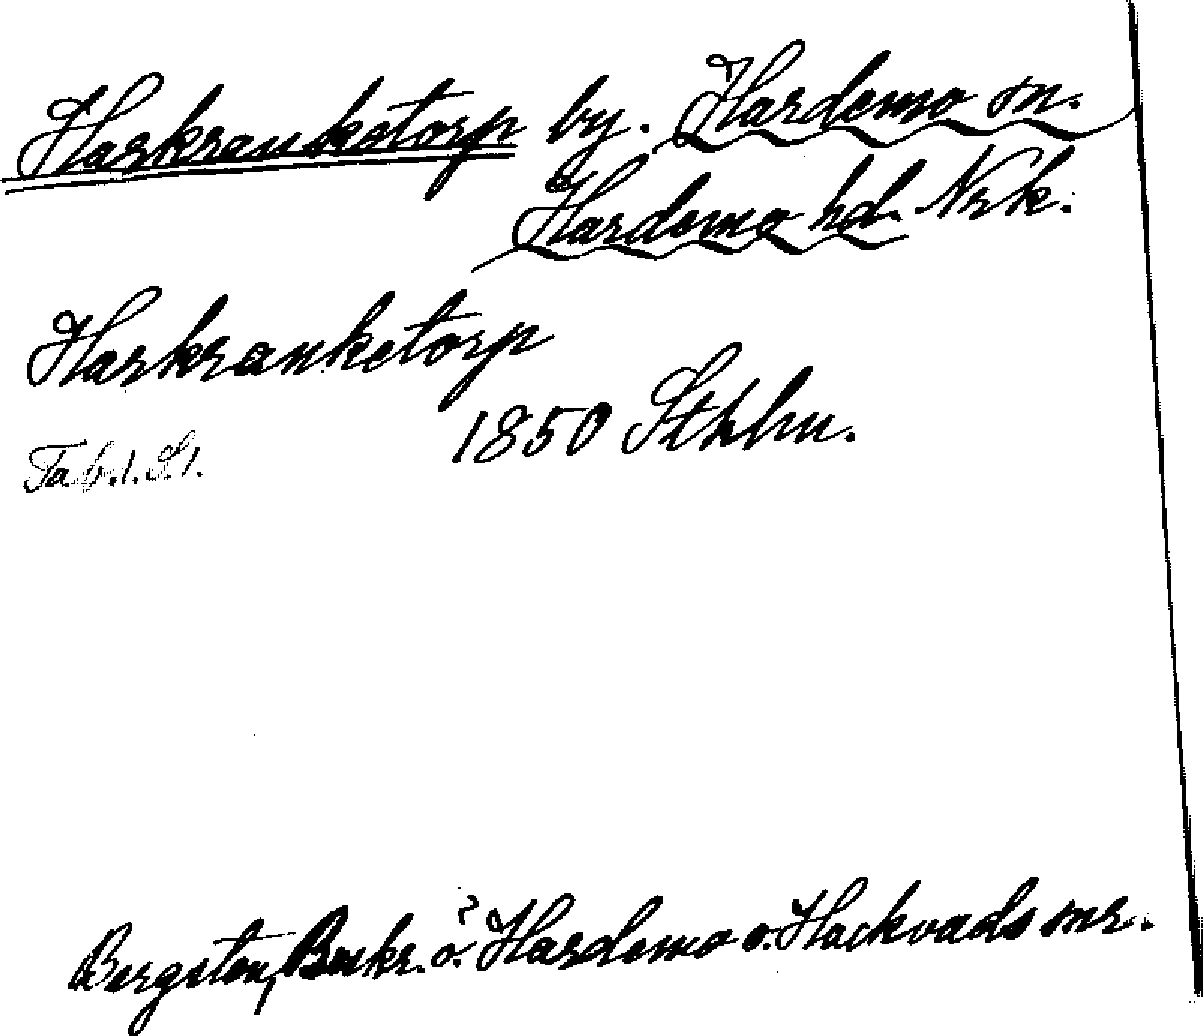 Harkranketorp by. Hardemo sn.
Hardemo hd. Nrk.
Harkranketorp
1850 Sthhu.
Tab. 1. S1.
?
Bergsten, Beskr. ö. Hardemo o. Hackvads snr.